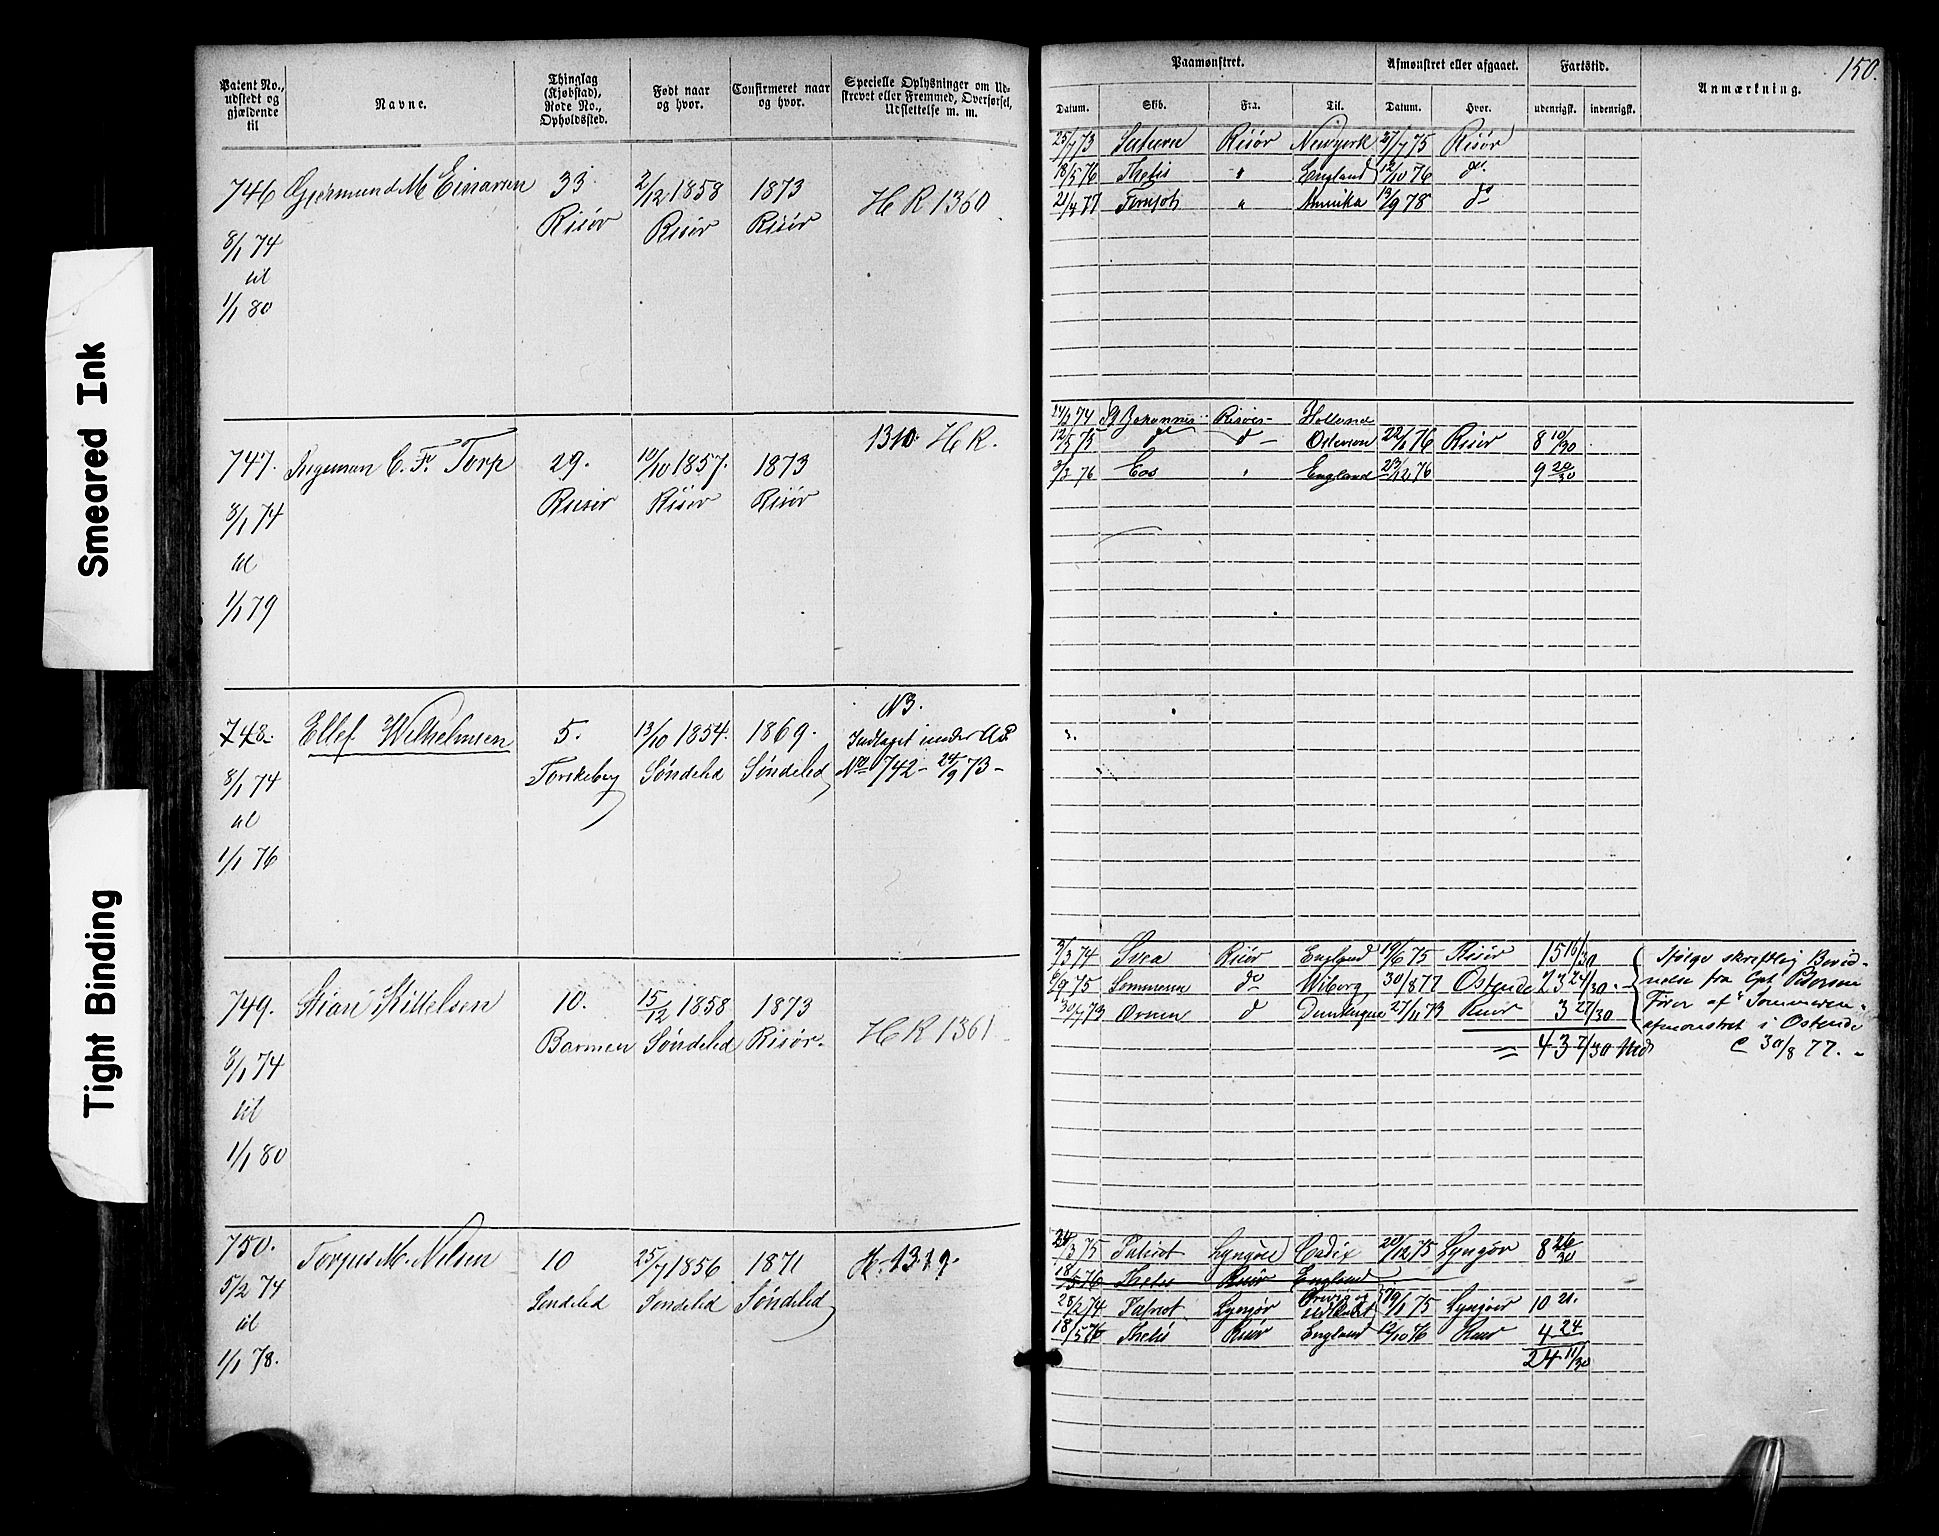 Smeared Ink
Tight Binding
Patent No., udstedt og gjældende til
Navne.
Thinglag (Kjøbstad), Rode No., Opholdssted.
Født naar og hvor.
Confirmeret naar og hvor.
Specielle Oplysninger om Udstrevet eller Fremmed, Overførsel, Udslettelse m. m.
746 Gjermund M Einarsen 33 2/12 1858 1873 H R 1360
8/1 74 Risør Risør Risør
til
1/1 80
747. Ingeman C. F. Torp 29. 10/10 1857. 1873 1310 H R.
8/1 74 Risør Risør Risør
til
1/1 79
NB.
748. Ellef Wilhelmsen 5. 13/10 1854. 1869. Indtaget under A.P.
8/1 74 Torskeberg Søndeled Søndeled No 742 - 24/9 73 -
til
1/1 76
749. Stian Kittelsen 10. 15/12 1858 1873 H R 1361
8/1 74 Barmen Søndeled Risør.
til
1/1 80
750. Torjus M. Nilsen 10 25/7 1856 1871 H. 1319.
5/2 74 Søndeled Søndeled Søndeled
til
1/1 78.
150.
Paamønstret. Afmønstret eller afgaaet. Fartstid. Anmærkning.
Datum. Skib. Fra. Til. Datum. Hvor. udenrigsk. indenrigsk.
25/7 73 Saturn Risør Newyork 27/7 75 Risør
18/5 76 Thetis " England 12/10 76 do
21/4 77 Fornjot " Amerika 13/9 78 do
24/3 74 St Johannes Risør Holland
12/5 75 d d - Østersøen 22/1 76 Risør 8 10/30
3/3 76 Eos " England 23/12 76 9 20/30
9/3 74 Svea Risør England 19/6 75 Risør 15 16/30
6/9 75 Sommeren do Wiborg 30/8 77 Ostende 23 24/30
30/7 73 Ørnen d 27/11 73 Risør 3 27/30
= 43 7/30 Mdr
Ifølge skreftlig Bevid-
nelse fra Cpt Pedersen
Fører af "Sommeren"
afmønstret i Ostende
30/8 77.
24/3 75 Patriot Lyngør Cadix 20/12 75 Lyngør 8 26/30
18/5 76 Thetis Risør England
28/2 74 Patriot Lyngør 19/1 75 Lyngør 10 21.
18/5 76 Thetis Risør England 12/10 76 Risør 4 24
24 11/30